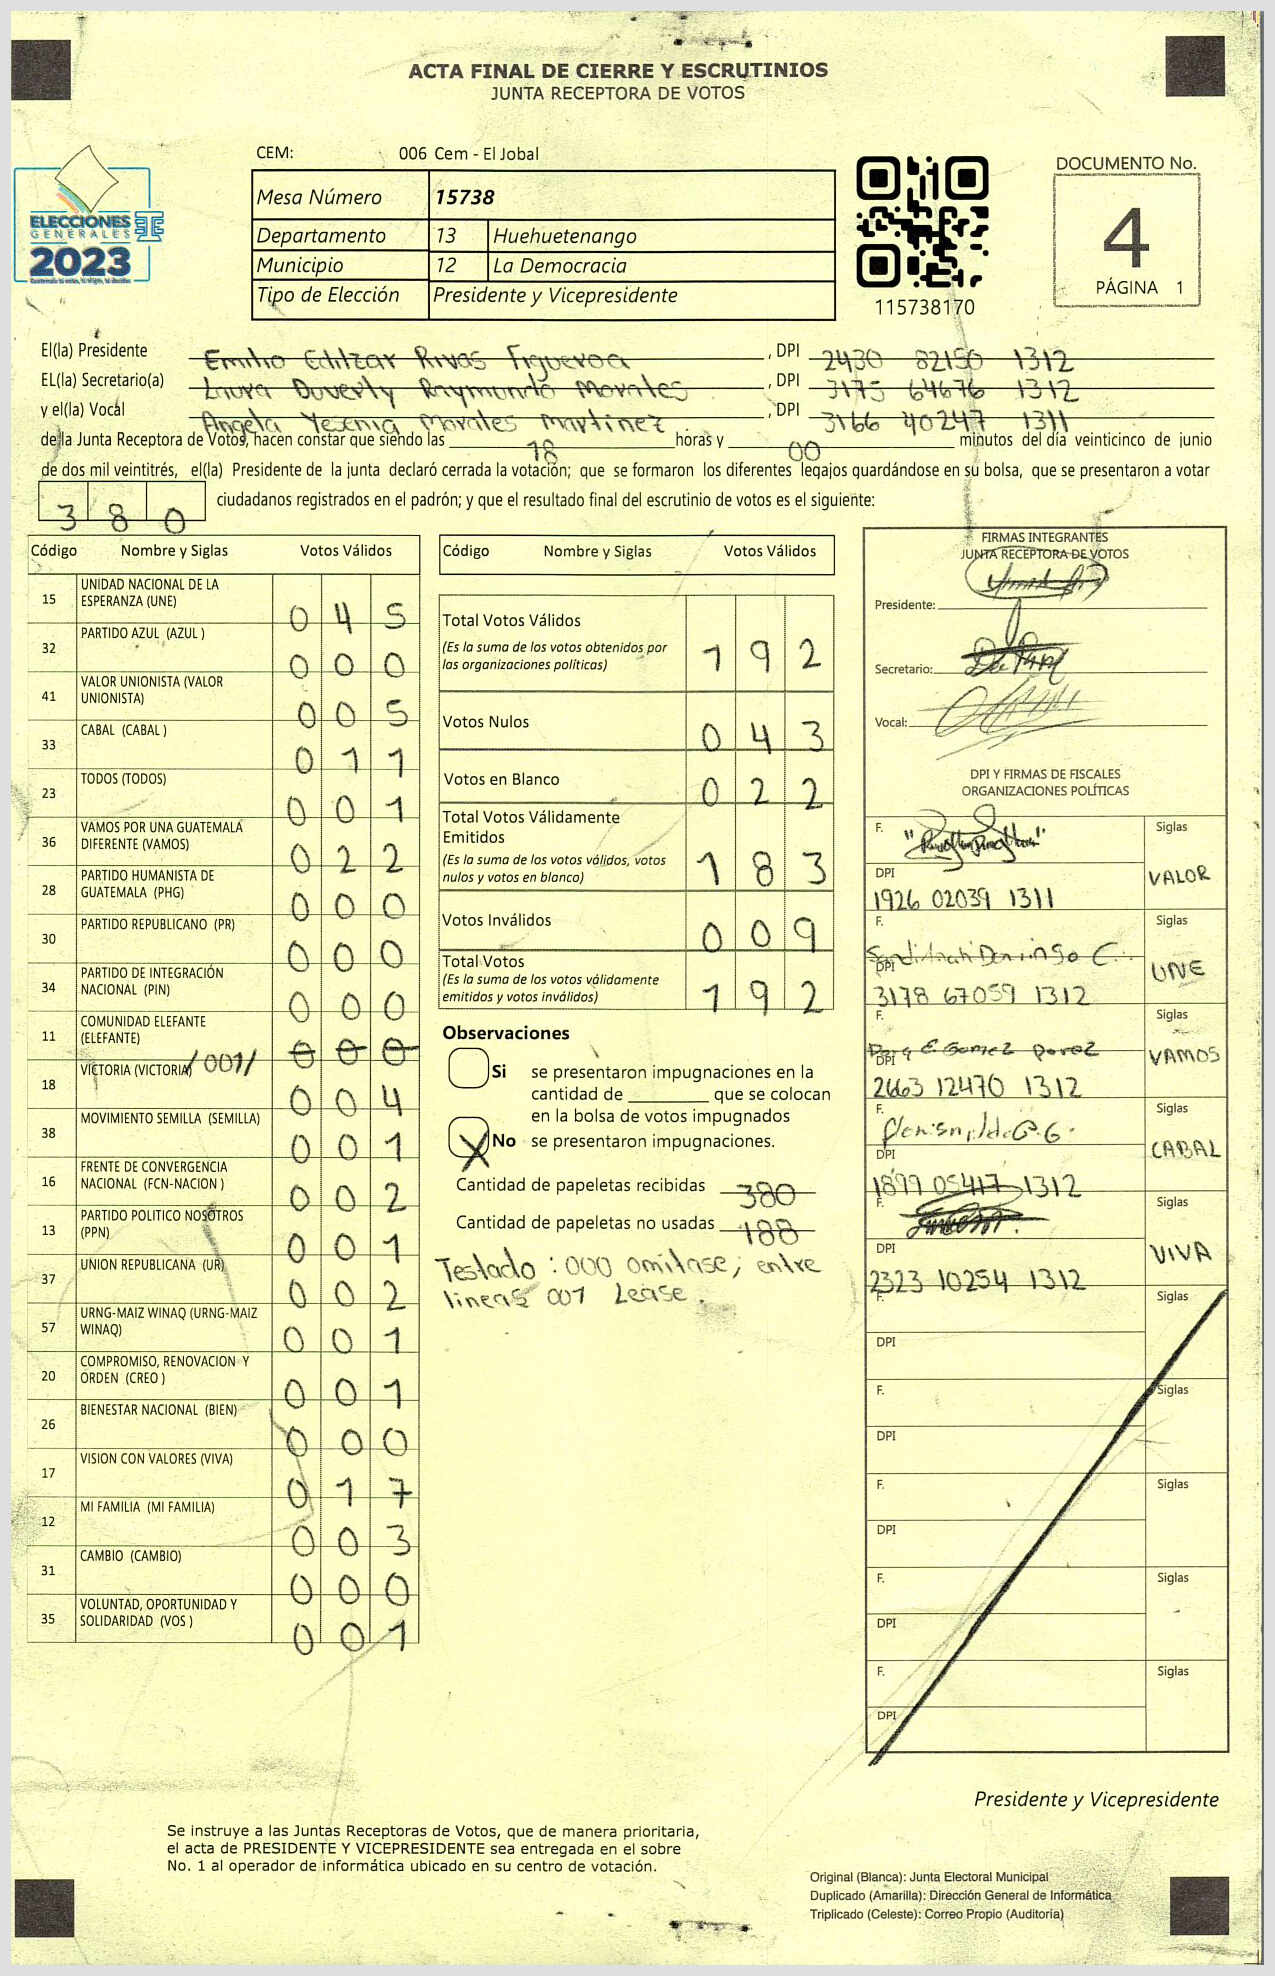 ACTA FINAL DE CIERRE Y ESCRUTINIOS
JUNTA RECEPTORA DE VOTOS
CEM: 006 Cem - El Jobal
ELECCIONES
GENERALES
2023
Mesa Número 15738
Departamento 13 Huehuetenango
Municipio 12 La Democracia
Tipo de Elección Presidente y Vicepresidente
115738170
DOCUMENTO No.
4
PÁGINA 1
El(la) Presidente Emilio Edilzar Rivas Figueroa , DPI 2430 82150 1312
EL(la) Secretario(a) Laura Duverly Raymundo Morales , DPI 3175 64676 1312
y el(la) Vocal Angela Yesenia Morales Martinez , DPI 3166 40247 1311
de la Junta Receptora de Votos, hacen constar que siendo las 18 horas y 00 minutos del día veinticinco de junio
de dos mil veintitrés, el(la) Presidente de la junta declaró cerrada la votación; que se formaron los diferentes legajos guardándose en su bolsa, que se presentaron a votar
380 ciudadanos registrados en el padrón; y que el resultado final del escrutinio de votos es el siguiente:
Código Nombre y Siglas Votos Válidos
15 UNIDAD NACIONAL DE LA ESPERANZA (UNE) 0 4 5
32 PARTIDO AZUL (AZUL ) 0 0 0
41 VALOR UNIONISTA (VALOR UNIONISTA) 0 0 5
33 CABAL (CABAL ) 0 1 1
23 TODOS (TODOS) 0 0 1
36 VAMOS POR UNA GUATEMALA DIFERENTE (VAMOS) 0 2 2
28 PARTIDO HUMANISTA DE GUATEMALA (PHG) 0 0 0
30 PARTIDO REPUBLICANO (PR) 0 0 0
34 PARTIDO DE INTEGRACIÓN NACIONAL (PIN) 0 0 0
11 COMUNIDAD ELEFANTE (ELEFANTE) 0 0 0
/001/
18 VICTORIA (VICTORIA) 0 0 4
38 MOVIMIENTO SEMILLA (SEMILLA) 0 0 1
16 FRENTE DE CONVERGENCIA NACIONAL (FCN-NACION ) 0 0 2
13 PARTIDO POLITICO NOSOTROS (PPN) 0 0 1
37 UNION REPUBLICANA (UR) 0 0 2
57 URNG-MAIZ WINAQ (URNG-MAIZ WINAQ) 0 0 1
20 COMPROMISO, RENOVACION Y ORDEN (CREO ) 0 0 1
26 BIENESTAR NACIONAL (BIEN) 0 0 0
17 VISION CON VALORES (VIVA) 0 1 7
12 MI FAMILIA (MI FAMILIA) 0 0 3
31 CAMBIO (CAMBIO) 0 0 0
35 VOLUNTAD, OPORTUNIDAD Y SOLIDARIDAD (VOS ) 0 0 1
Código Nombre y Siglas Votos Válidos
Total Votos Válidos 1 9 2
(Es la suma de los votos obtenidos por
las organizaciones políticas)
Votos Nulos 0 4 3
Votos en Blanco 0 2 2
Total Votos Válidamente
Emitidos 1 8 3
(Es la suma de los votos válidos, votos
nulos y votos en blanco)
Votos Inválidos 0 0 9
Total Votos 1 9 2
(Es la suma de los votos válidamente
emitidos y votos inválidos)
Observaciones
Si se presentaron impugnaciones en la
cantidad de ________ que se colocan
en la bolsa de votos impugnados
X No se presentaron impugnaciones.
Cantidad de papeletas recibidas 380
Cantidad de papeletas no usadas 188
Testado : 000 omitase; entre
lineas 001 Lease.
FIRMAS INTEGRANTES
JUNTA RECEPTORA DE VOTOS
Presidente:
Secretario:
Vocal:
DPI Y FIRMAS DE FISCALES
ORGANIZACIONES POLÍTICAS
F. Siglas
DPI VALOR
1926 02039 1311
F. Siglas
DPI UNE
3178 67059 1312
F. E. Gomez Perez Siglas
DPI VAMOS
2663 12470 1312
F. Siglas
DPI CABAL
1899 05417 1312
F. Siglas
DPI VIVA
2323 10254 1312
F. Siglas
DPI
F. Siglas
DPI
F. Siglas
DPI
F. Siglas
DPI
F. Siglas
DPI
Presidente y Vicepresidente
Se instruye a las Juntas Receptoras de Votos, que de manera prioritaria,
el acta de PRESIDENTE Y VICEPRESIDENTE sea entregada en el sobre
No. 1 al operador de informática ubicado en su centro de votación.
Original (Blanca): Junta Electoral Municipal
Duplicado (Amarilla): Dirección General de Informática
Triplicado (Celeste): Correo Propio (Auditoría)